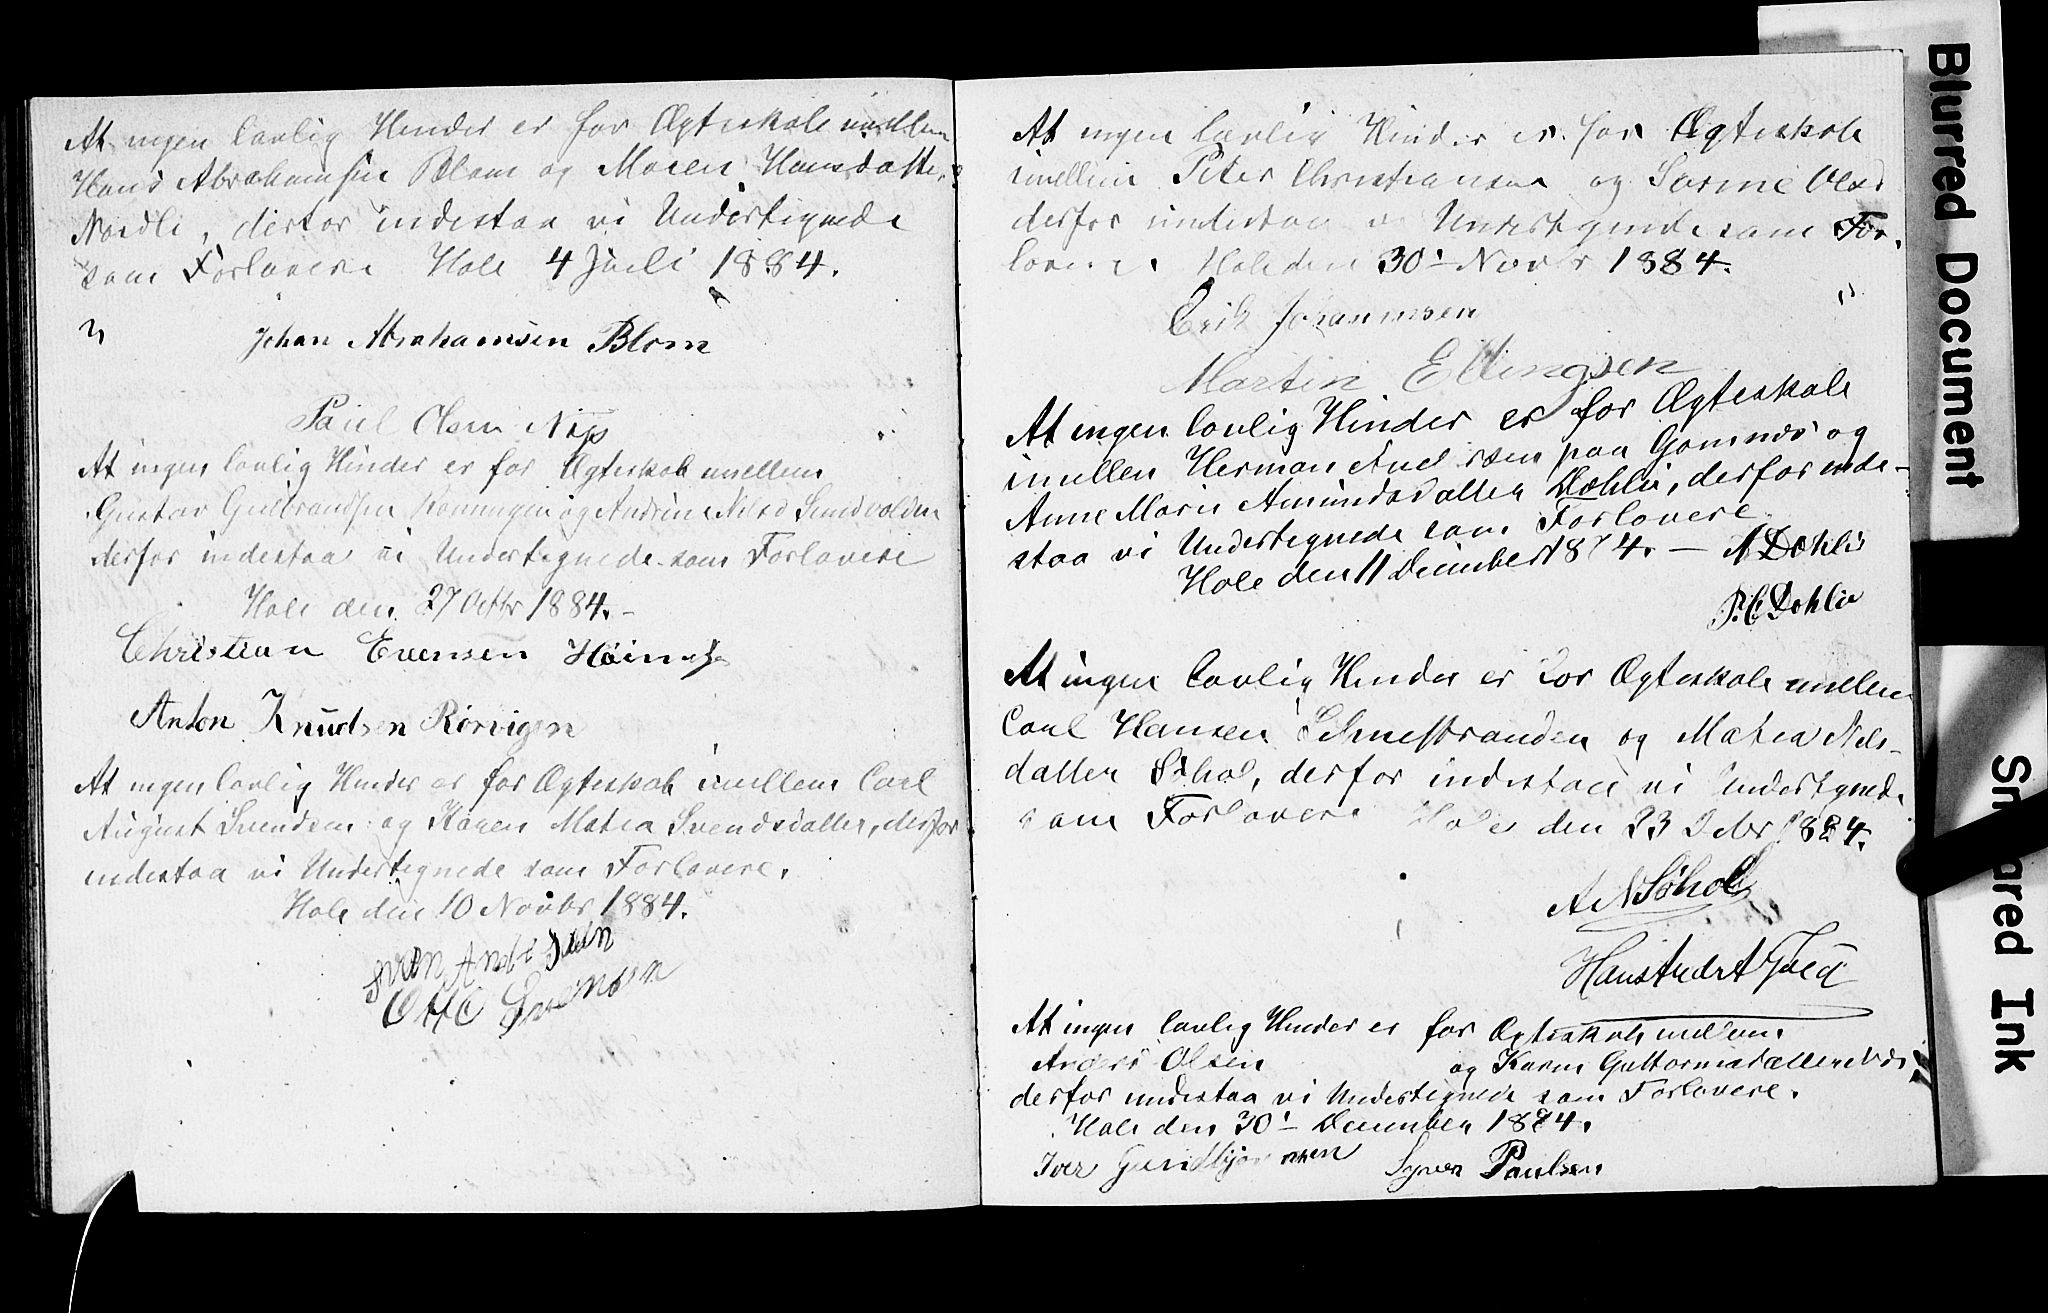 At ingen lovlig Hinder er for Ægteskab imellem
Hans Abrahamsen Blom og Maren Hansdatter
Nordli, derfor indestaa vi Undertegnede
som Forlovere Hole 4 Juli 1884.
Johan Abrahamsen Blom
Paul Olsen
At ingen lovlig Hinder er for Ægteskab imellem
Gustav Gulbrandsen og Andrine Nilsd Sundvolden
derfor indestaa vi Undertegnede som Forlovere
Hole den 27 Octbr 1884.-
Christian Evensen
Anton Knudsen Rørvigen
At ingen lovlig Hinder er for Ægteskab imellem Carl
August Svendsen og Karen Matea Svendsdatter, derfor
indestaa vi Undertegnede som Forlovere.
Hole den 10 Novbr 1884.
Otto Svensen
At ingen lovlig Hinder er for Ægteskab
imellem Peter Christiansen og Olsd
derfor indestaa vi Undertegnede som For-
lovere. Hole den 30' Novbr 1884.
Erik Johannesen
Martin Ellingsen
At ingen lovlig Hinder er for Ægteskab
imellem Herman paa Gomnæs og
Anne Marie Amundsdatter Dæhlie, derfor inde-
staa vi Undertegnede som Forlovere
Hole den 11 December 1874. — A Dæhlie
P. C Dæhlie
At ingen lovlig Hinder er for Ægteskab imellem
Carl Hansen og Matea Nils-
datter Søhol, derfor indestaa vi Undertegnede
som Forlovere Hole den 23 Decbr 1884.
A N Søhol
At ingen lovlig Hinder er for Ægteskab imellem
Anders Olsen og Karen Guttormsdatter
derfor indestaa vi Undertegnede som Forlovere.
Hole den 30' December 1874.
Iver Syver Paulsen
Blurred Document
Sm ared Ink